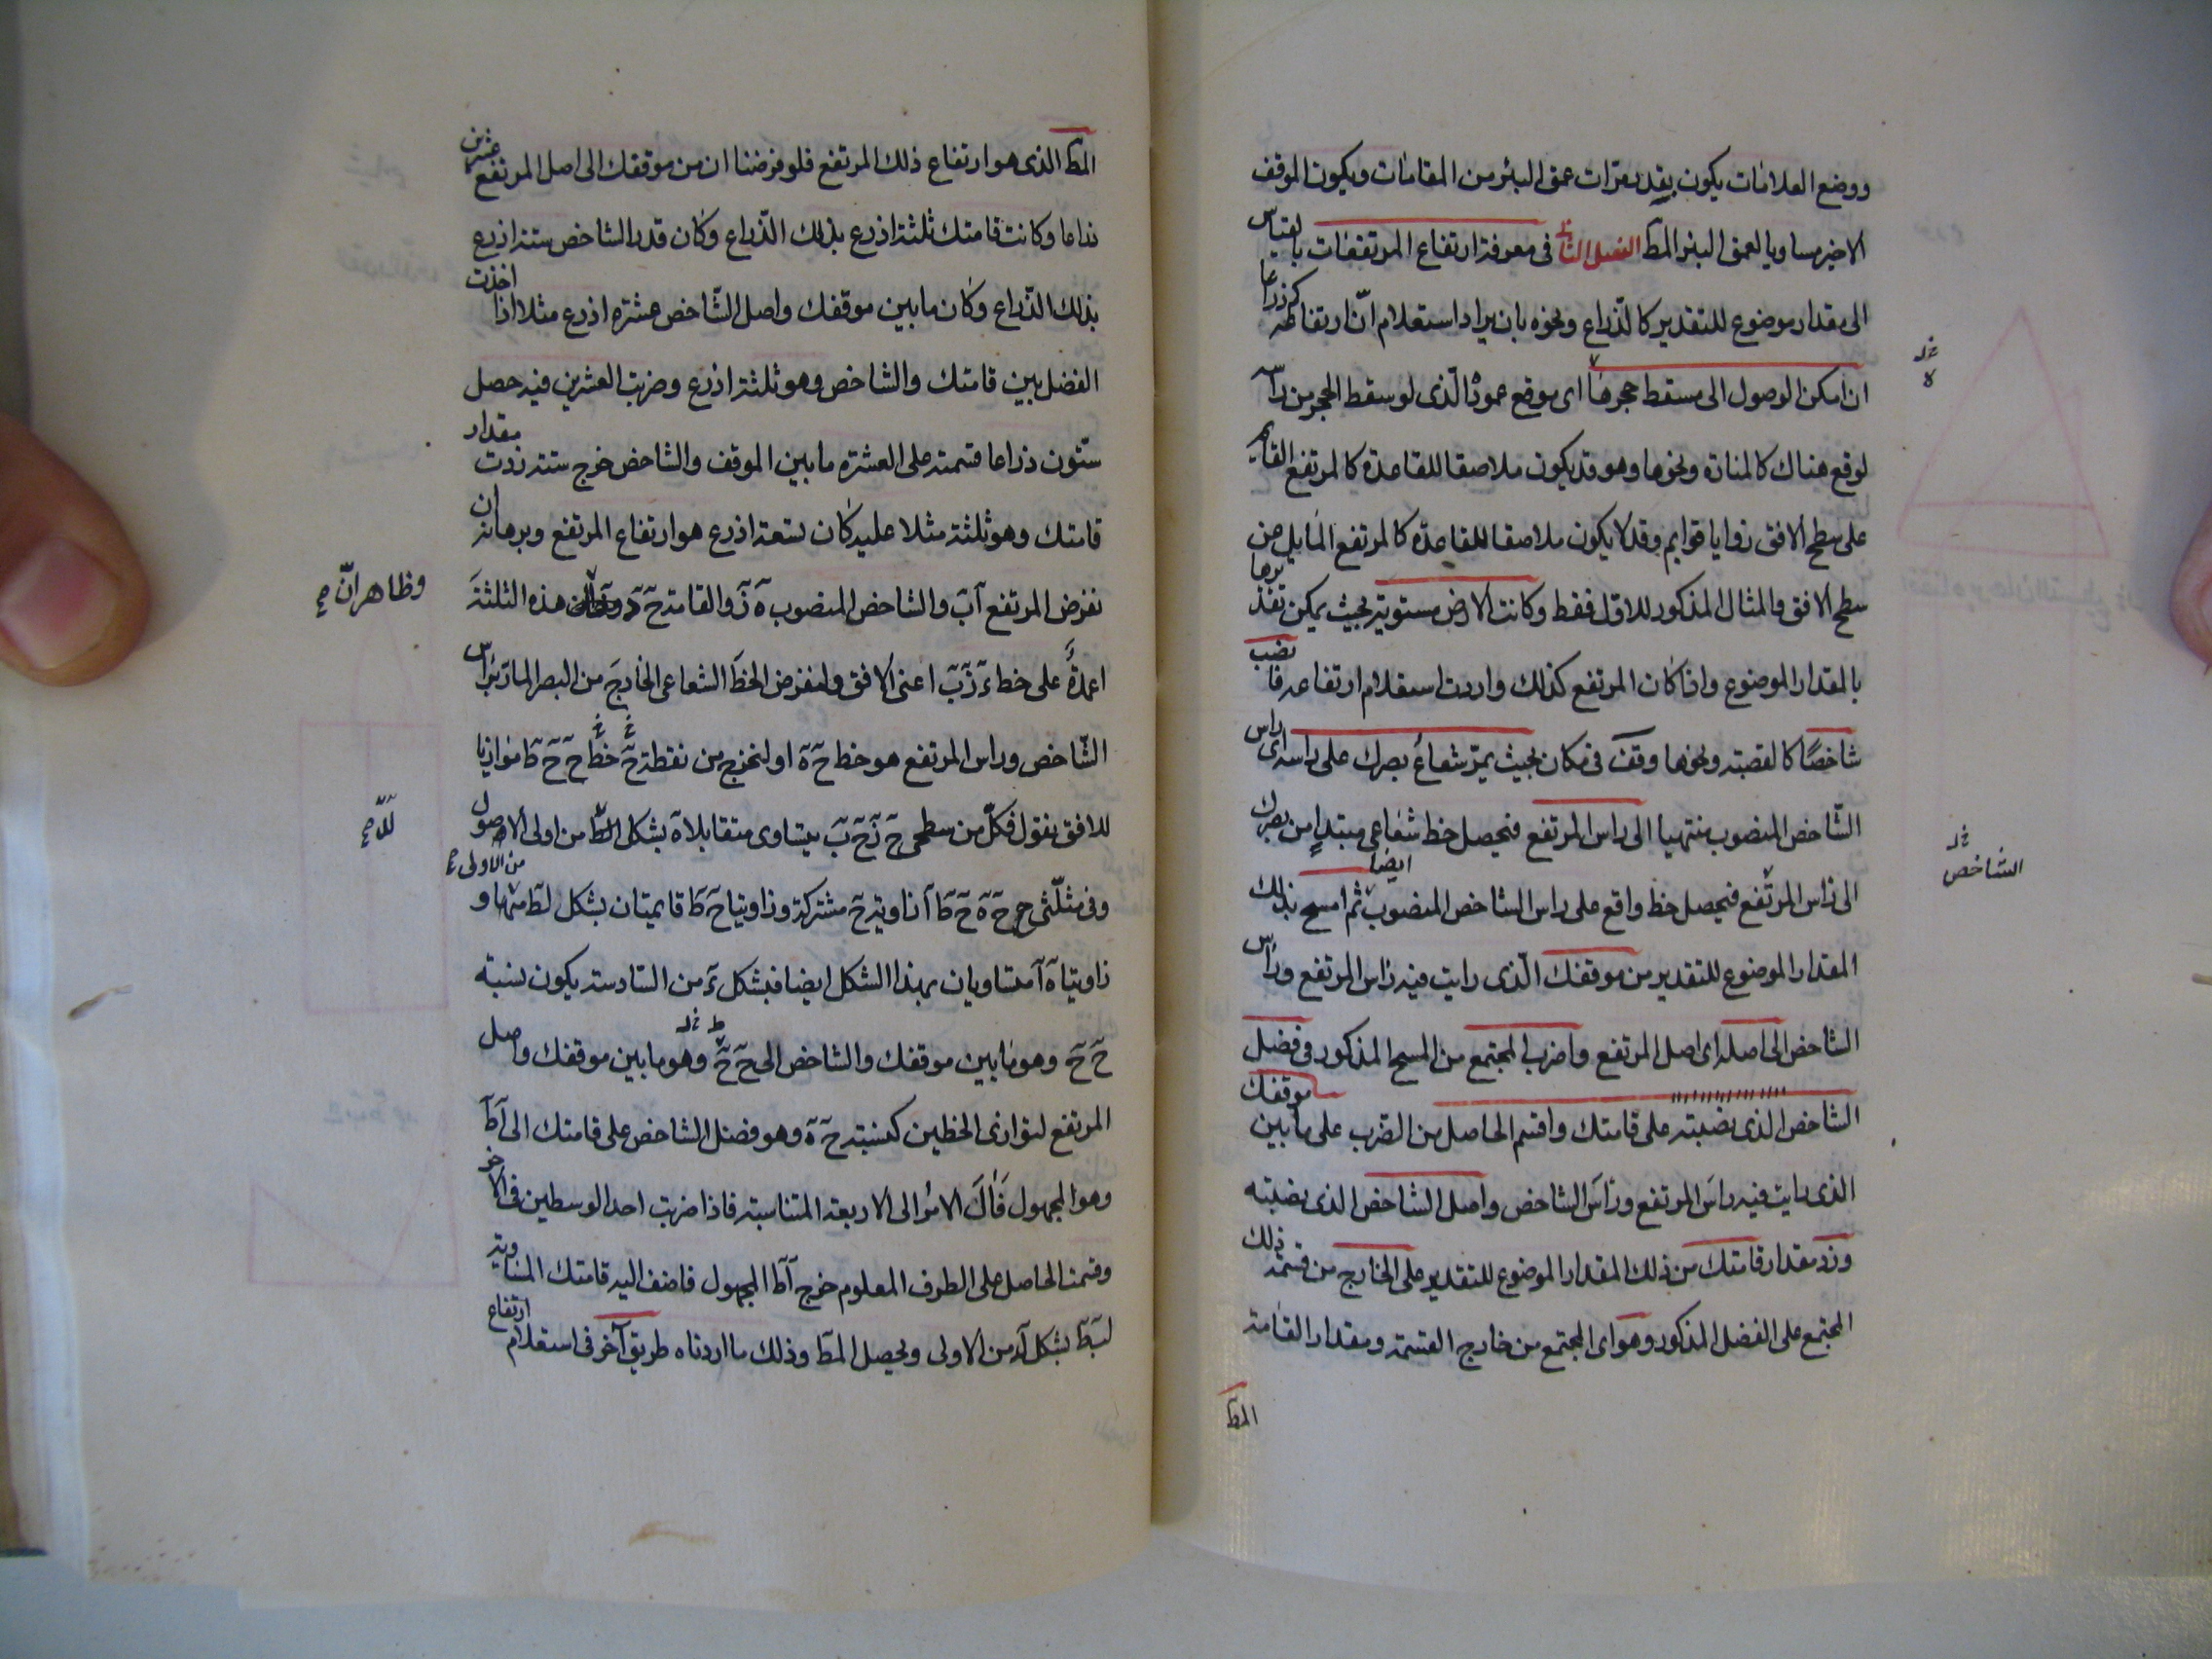 ووضع العلامات يكون بقدر مرات عمق البئر من المقامات ويكون الموقف
الاخير مساويا لعمق البئر المط الفصل الثانى فى معرفة ارتفاع المرتفعات بالقياس
الى مقدار موضوع للتقدير كالذراع ونحوه بان يراد استعلام انّ ارتفاعه كم ذراعا
ان امكن الوصول الى مسقط حجرها اى موقع عمود الّذى لو سقط الحجر من راسه
لوقع هناك كالمنارة ونحوها وهو قد يكون ملاصقا للقاعدة كالمرتفع القايم
على سطح الافق زوايا قوايم وقد لا يكون ملاصقا للقاعدة كالمرتفع المايل عن
سطح الافق والمثال المذكور للاول فقط وكانت الارض مستوية بحيث يمكن تقديرها
بالمقدار الموضوع واذا كان المرتفع كذلك واردت استعلام ارتفاعه فانصب
شاخصًا كالقصبة ونحوها وقف فى مكان بحيث يمرّ شعاع بصرك على راسه اى راس
الشّاخص المنصوب منتهيا الى راس المرتفع فيحصل خط شعاعى مبتدإ من بصرك
الى راس المرتفع فيحصل خط واقع على راس الشاخص المنصوب ايضا ثم امسح بذلك
المقدار الموضوع للتقدير من موقفك الّذى رايت فيه راس المرتفع وراس
الشاخص الى اصله اى اصل المرتفع واضرب المجتمع من المسح المذكور فى فضل
الشاخص الذى نصبته على قامتك واقسم الحاصل من الضرب على ما بين موقفك
الذى رايت فيه راس المرتفع وراس الشاخص واصل الشاخص الذى نصبته
وزد مقدار قامتك من ذلك المقدار الموضوع للتقدير على الخارج من قسمة ذلك
المجتمع على الفضل المذكور وهو اى المجتمع من خارج القسمة ومقدار القامة
المط
الشاخص
المط الذى هو ارتفاع ذلك المرتفع فلو فرضنا ان من موقفك الى اصل المرتفع عشرين
ذراعا وكانت قامتك ثلثة اذرع بذلك الذّراع وكان قدر الشاخص ستة اذرع
بذلك الذّراع وكان ما بين موقفك واصل الشّاخص عشرة اذرع مثلا اذا اخذت
الفضل بين قامتك والشاخص وهو ثلثة اذرع وضربت العشرين فيه حصل
ستّون ذراعا قسمته على العشرة ما بين الموقف والشاخص خرج ستة زدت مقدار
قامتك وهو ثلثة مثلا عليه كان تسعة اذرع هو ارتفاع المرتفع وبرهانه ان
نفرض المرتفع آب والشاخص المنصوب ه ز والقامة ح هذه الثلثة
وظاهر انّ صح
اعمدة على خط ء ز ب اعنى الافق ولنفرض الخط الشعاعى الخارج من البصر المار براس
الشّاخص وراس المرتفع هو خط ح ه ا ولنخرج من نقطة ح خط ح ح ط موازيا
للافق نقول فكلّ من سطحى ح ز ح ب يتساوى متقابلاه بشكل من اولى الاصول
وفى مثلّثى ح ح ه ح ط آ زاوية ح مشتركة وزاويتا ح ط قايمتان بشكل لط منها و
من الاولى
زاويتا ه آ متساويان بهذا الشكل ايضا فبشكل ء من السادسة يكون نسبة
ح ح وهو ما بين موقفك والشاخص الى ح ح وهو ما بين موقفك واصل
المرتفع لتوازى الخطين كنسبة ح ه وهو فضل الشاخص على قامتك الى آط
وهو المجهول فآل الامر الى الاربعة المتناسبة فاذا ضربت احد الوسطين فى الاخر
وقسمنا الحاصل على الطرف المعلوم خرج آط المجهول فاضف اليه قامتك المساوية
لبط بشكل لد من الاولى ويحصل المط وذلك ما اردناه طريق آخر فى استعلام ارتفاع